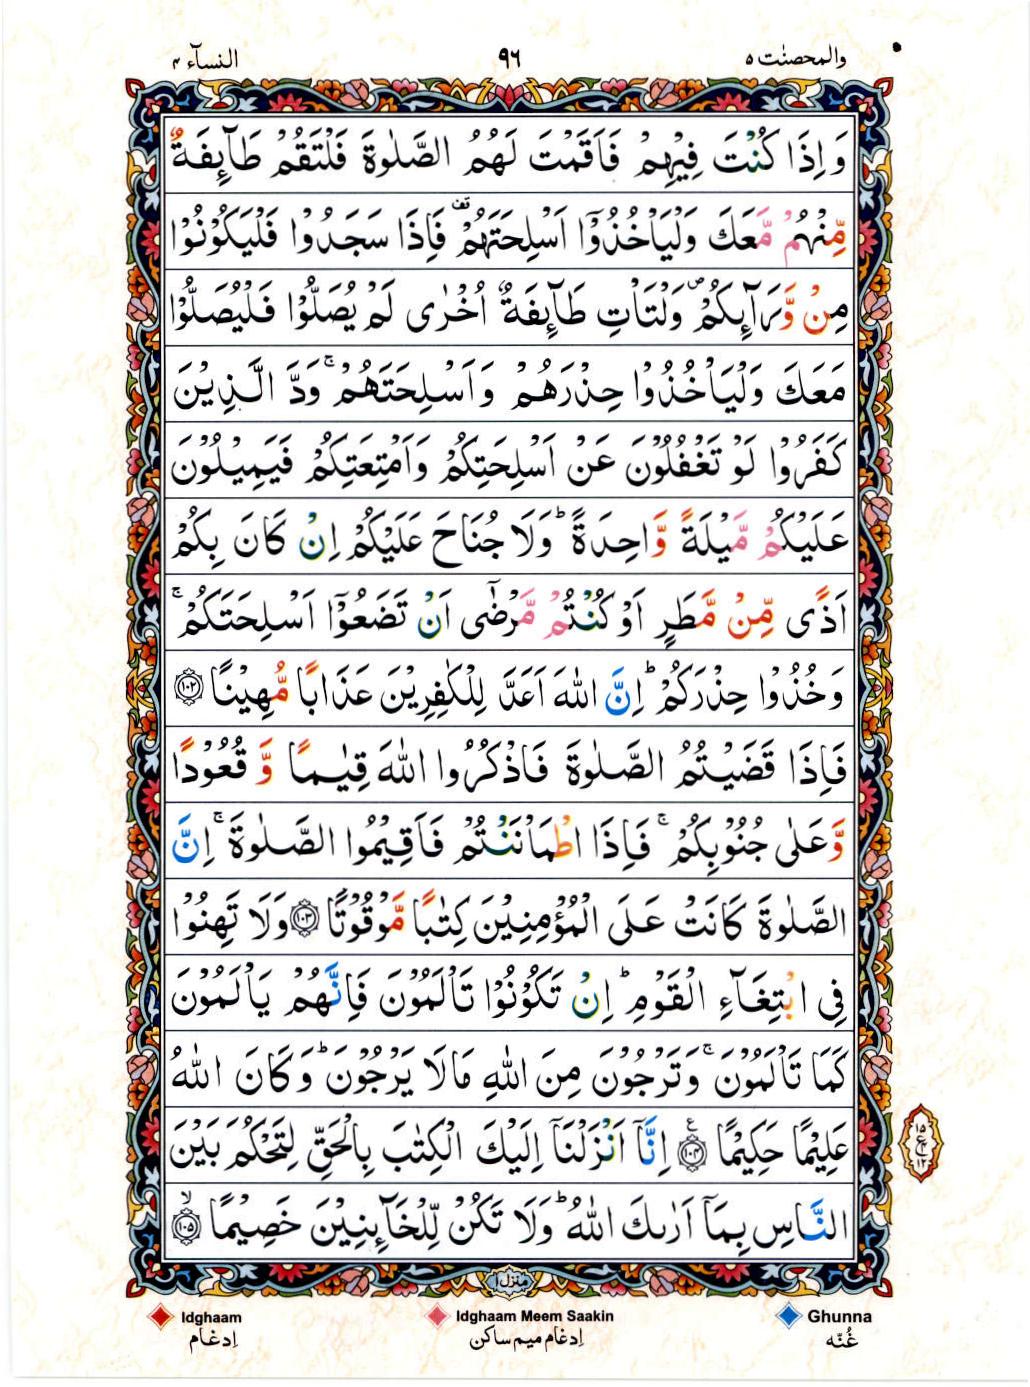 والمحصنٰت ٥
٩٦
النسآء ٤
وَ اِذَا كُنْتَ فِیْهِمْ فَاَقَمْتَ لَهُمُ الصَّلٰوةَ فَلْتَقُمْ طَآىِٕفَةٌ
مِّنْهُمْ مَّعَكَ وَلْیَاْخُذُوْۤا اَسْلِحَتَهُمْ ۫ فَاِذَا سَجَدُوْا فَلْیَكُوْنُوْا
مِنْ وَّرَآىِٕكُمْ ۪ وَلْتَاْتِ طَآىِٕفَةٌ اُخْرٰى لَمْ یُصَلُّوْا فَلْیُصَلُّوْا
مَعَكَ وَلْیَاْخُذُوْا حِذْرَهُمْ وَ اَسْلِحَتَهُمْ ۚ وَدَّ الَّذِیْنَ
كَفَرُوْا لَوْ تَغْفُلُوْنَ عَنْ اَسْلِحَتِكُمْ وَ اَمْتِعَتِكُمْ فَیَمِیْلُوْنَ
عَلَیْكُمْ مَّیْلَةً وَّاحِدَةً ؕ وَ لَا جُنَاحَ عَلَیْكُمْ اِنْ كَانَ بِكُمْ
اَذًى مِّنْ مَّطَرٍ اَوْ كُنْتُمْ مَّرْضٰۤى اَنْ تَضَعُوْۤا اَسْلِحَتَكُمْ ۚ
وَ خُذُوْا حِذْرَكُمْ ؕ اِنَّ اللّٰهَ اَعَدَّ لِلْكٰفِرِیْنَ عَذَابًا مُّهِیْنًا ﴿۱۰۲﴾
فَاِذَا قَضَیْتُمُ الصَّلٰوةَ فَاذْكُرُوا اللّٰهَ قِیٰمًا وَّ قُعُوْدًا
وَّ عَلٰى جُنُوْبِكُمْ ۚ فَاِذَا اطْمَاْنَنْتُمْ فَاَقِیْمُوا الصَّلٰوةَ ۚ اِنَّ
الصَّلٰوةَ كَانَتْ عَلَى الْمُؤْمِنِیْنَ كِتٰبًا مَّوْقُوْتًا ﴿۱۰۳﴾ وَ لَا تَهِنُوْا
فِی ابْتِغَآءِ الْقَوْمِ ؕ اِنْ تَكُوْنُوْا تَاْلَمُوْنَ فَاِنَّهُمْ یَاْلَمُوْنَ
كَمَا تَاْلَمُوْنَ ۚ وَ تَرْجُوْنَ مِنَ اللّٰهِ مَا لَا یَرْجُوْنَ ؕ وَ كَانَ اللّٰهُ
عَلِیْمًا حَكِیْمًا ﴿۱۰۴﴾ اِنَّاۤ اَنْزَلْنَاۤ اِلَیْكَ الْكِتٰبَ بِالْحَقِّ لِتَحْكُمَ بَیْنَ
النَّاسِ بِمَاۤ اَرٰىكَ اللّٰهُ ؕ وَ لَا تَكُنْ لِّلْخَآىِٕنِیْنَ خَصِیْمًا ۙ﴿۱۰۵﴾
١٥
ع
١٢
منزل ١
Idghaam
Idghaam Meem Saakin
Ghunna
اِدغام
اِدغام میم ساکن
غُنّه